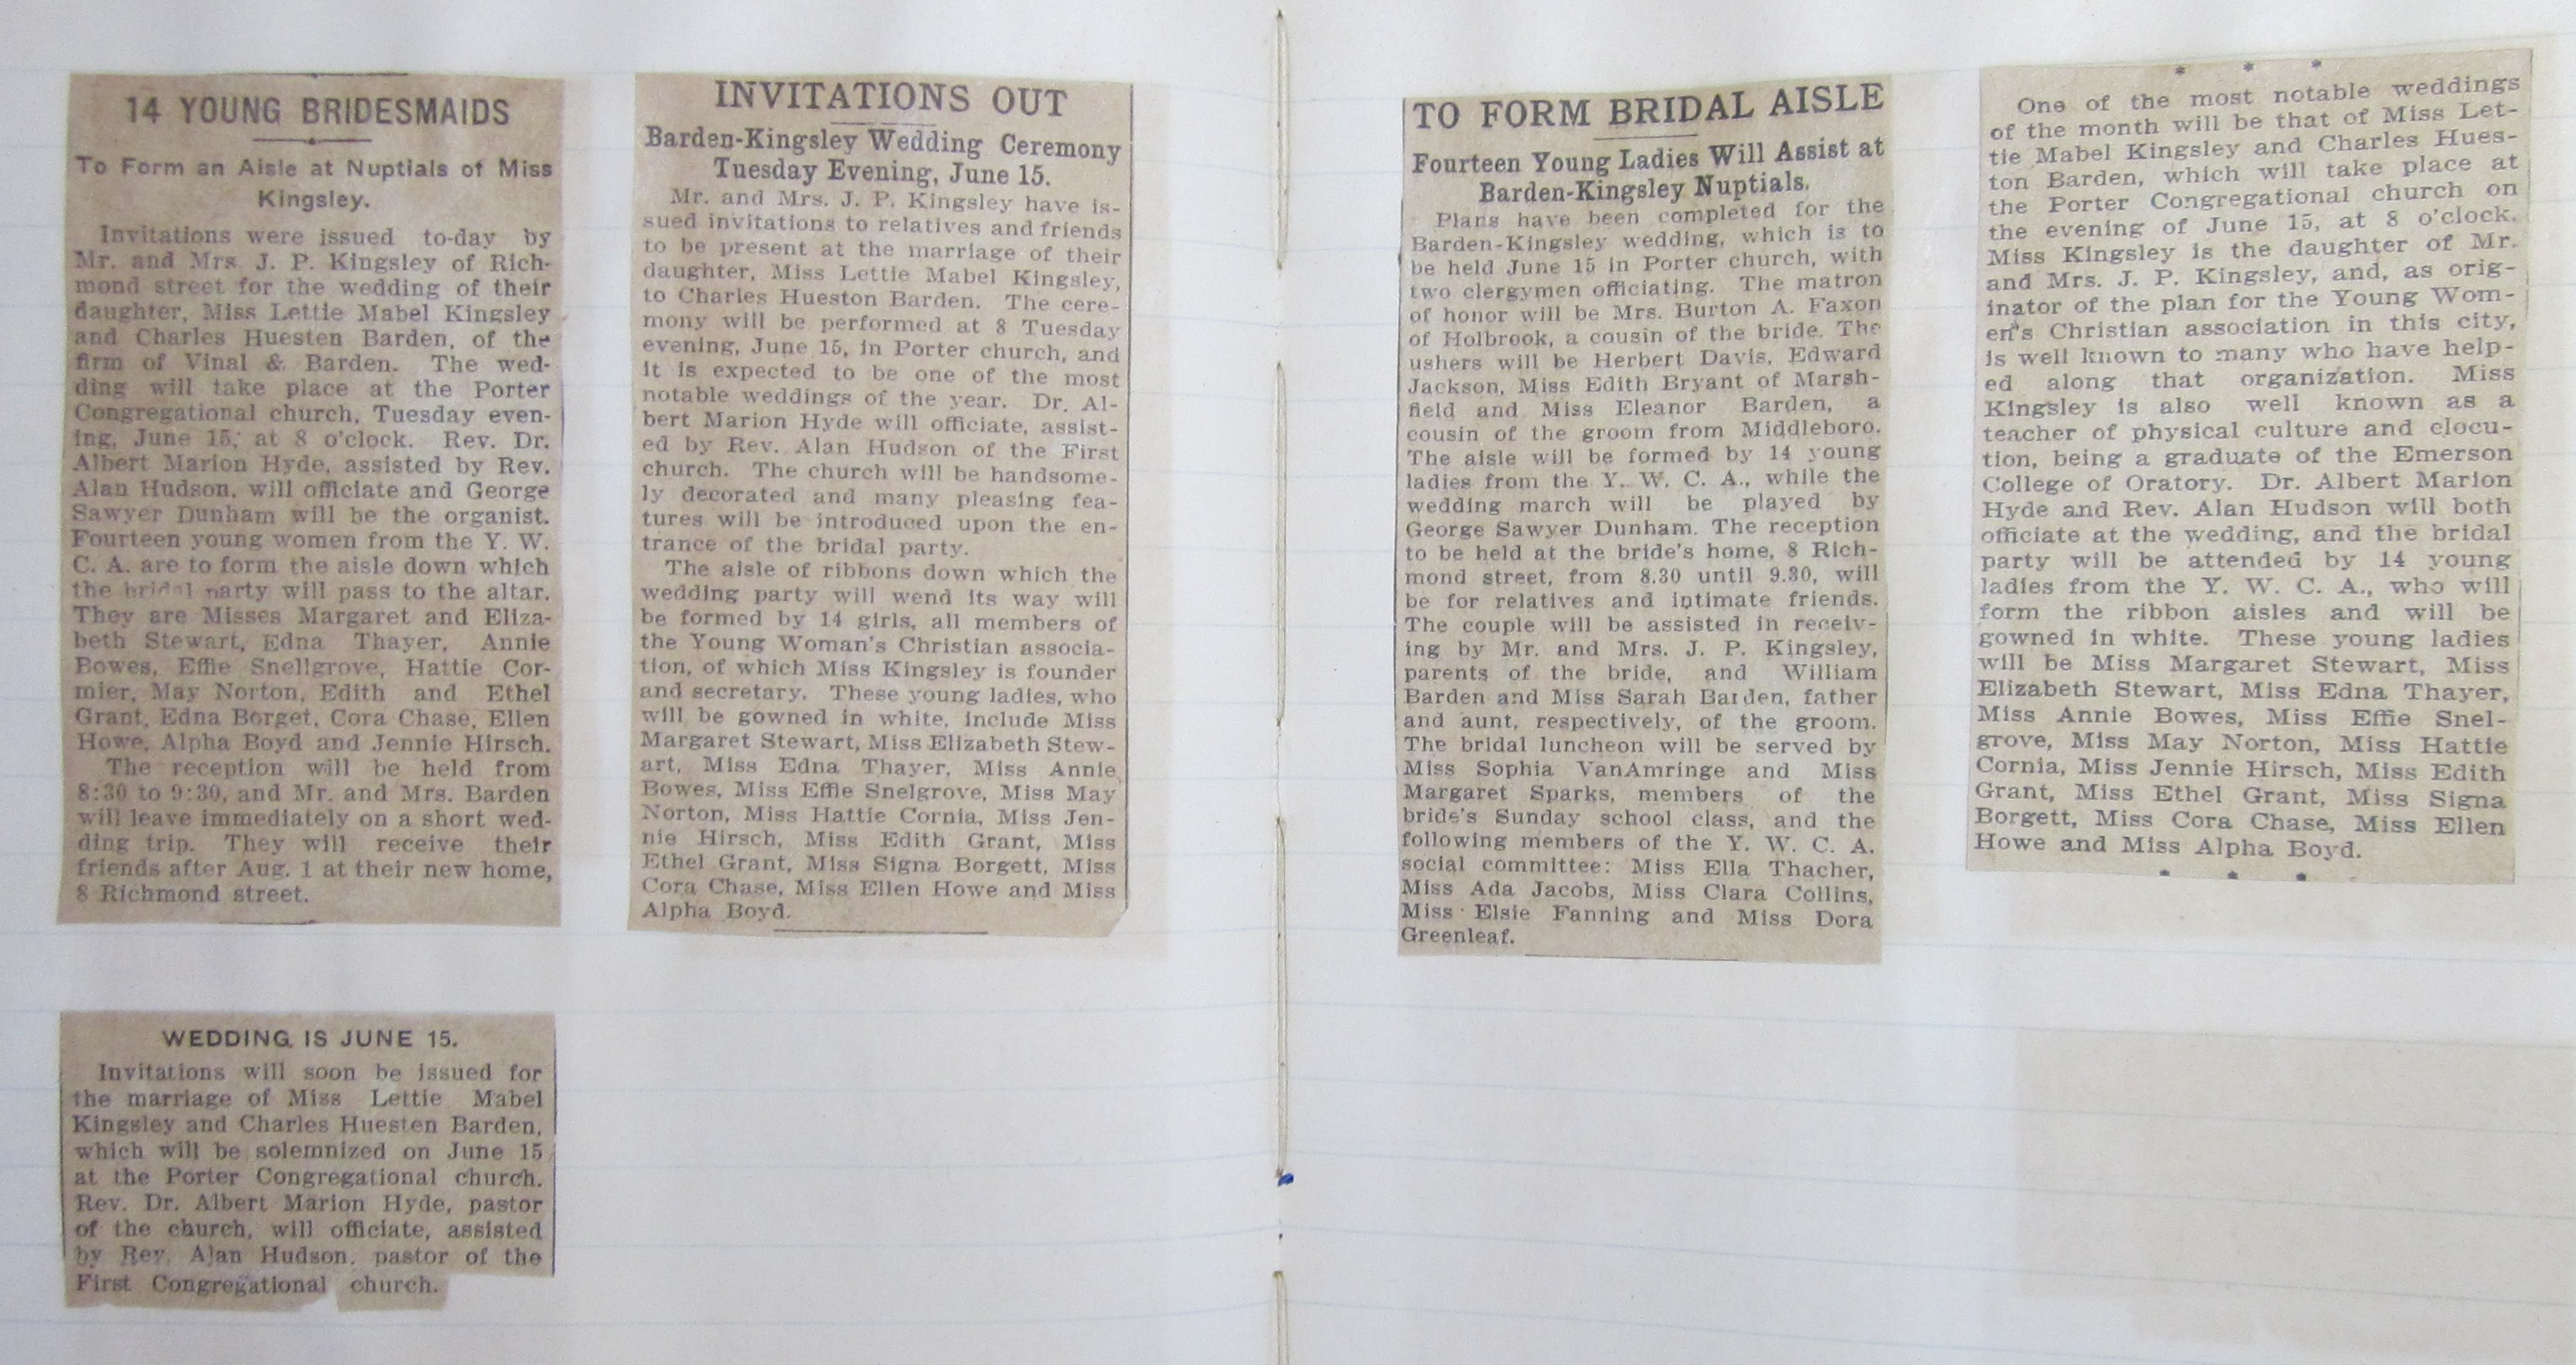 14 YOUNG BRIDESMAIDS
To Form an Aisle at Nuptials of Miss
Kingsley.
Invitations were issued to-day by
Mr. and Mrs. J. P. Kingsley of Rich-
mond street for the wedding of their
daughter, Miss Lettie Mabel Kingsley
and Charles Huesten Barden, of the
firm of Vinal & Barden. The wed-
ding will take place at the Porter
Congregational church, Tuesday even-
ing, June 15, at 8 o'clock. Rev. Dr.
Albert Marion Hyde, assisted by Rev.
Alan Hudson, will officiate and George
Sawyer Dunham will be the organist.
Fourteen young women from the Y. W.
C. A. are to form the aisle down which
the bridal party will pass to the altar.
They are Misses Margaret and Eliza-
beth Stewart, Edna Thayer, Annie
Bowes, Effie Snellgrove, Hattie Cor-
mier, May Norton, Edith and Ethel
Grant, Edna Borget, Cora Chase, Ellen
Howe, Alpha Boyd and Jennie Hirsch.
The reception will be held from
8:30 to 9:30, and Mr. and Mrs. Barden
will leave immediately on a short wed-
ding trip. They will receive their
friends after Aug. 1 at their new home,
8 Richmond street.
WEDDING IS JUNE 15.
Invitations will soon be issued for
the marriage of Miss Lettie Mabel
Kingsley and Charles Huesten Barden,
which will be solemnized on June 15
at the Porter Congregational church.
Rev. Dr. Albert Marion Hyde, pastor
of the church, will officiate, assisted
by Rev. Alan Hudson, pastor of the
First Congregational church.
INVITATIONS OUT
Barden-Kingsley Wedding Ceremony
Tuesday Evening, June 15.
Mr. and Mrs. J. P. Kingsley have is-
sued invitations to relatives and friends
to be present at the marriage of their
daughter, Miss Lettie Mabel Kingsley,
to Charles Hueston Barden. The cere-
mony will be performed at 8 Tuesday
evening, June 15, in Porter church, and
it is expected to be one of the most
notable weddings of the year. Dr. Al-
bert Marion Hyde will officiate, assist-
ed by Rev. Alan Hudson of the First
church. The church will be handsome-
ly decorated and many pleasing fea-
tures will be introduced upon the en-
trance of the bridal party.
The aisle of ribbons down which the
wedding party will wend its way will
be formed by 14 girls, all members of
the Young Woman's Christian associa-
tion, of which Miss Kingsley is founder
and secretary. These young ladies, who
will be gowned in white, include Miss
Margaret Stewart, Miss Elizabeth Stew-
art, Miss Edna Thayer, Miss Annie
Bowes, Miss Effie Snelgrove, Miss May
Norton, Miss Hattie Cornia, Miss Jen-
nie Hirsch, Miss Edith Grant, Miss
Ethel Grant, Miss Signa Borgett, Miss
Cora Chase, Miss Ellen Howe and Miss
Alpha Boyd.
TO FORM BRIDAL AISLE
Fourteen Young Ladies Will Assist at
Barden-Kingsley Nuptials.
Plans have been completed for the
Barden-Kingsley wedding, which is to
be held June 15 in Porter church, with
two clergymen officiating. The matron
of honor will be Mrs. Burton A. Faxon
of Holbrook, a cousin of the bride. The
ushers will be Herbert Davis, Edward
Jackson, Miss Edith Bryant of Marsh-
field and Miss Eleanor Barden, a
cousin of the groom from Middleboro.
The aisle will be formed by 14 young
ladies from the Y. W. C. A., while the
wedding march will be played by
George Sawyer Dunham. The reception
to be held at the bride's home, 8 Rich-
mond street, from 8.30 until 9.30, will
be for relatives and intimate friends.
The couple will be assisted in receiv-
ing by Mr. and Mrs. J. P. Kingsley,
parents of the bride, and William
Barden and Miss Sarah Barden, father
and aunt, respectively, of the groom.
The bridal luncheon will be served by
Miss Sophia VanAmringe and Miss
Margaret Sparks, members of the
bride's Sunday school class, and the
following members of the Y. W. C. A.
social committee: Miss Ella Thacher,
Miss Ada Jacobs, Miss Clara Collins,
Miss Elsie Fanning and Miss Dora
Greenleaf.
* * *
One of the most notable weddings
of the month will be that of Miss Let-
tie Mabel Kingsley and Charles Hues-
ton Barden, which will take place at
the Porter Congregational church on
the evening of June 15, at 8 o'clock.
Miss Kingsley is the daughter of Mr.
and Mrs. J. P. Kingsley, and, as orig-
inator of the plan for the Young Wom-
en's Christian association in this city,
is well known to many who have help-
ed along that organization. Miss
Kingsley is also well known as a
teacher of physical culture and elocu-
tion, being a graduate of the Emerson
College of Oratory. Dr. Albert Marion
Hyde and Rev. Alan Hudson will both
officiate at the wedding, and the bridal
party will be attended by 14 young
ladies from the Y. W. C. A., who will
form the ribbon aisles and will be
gowned in white. These young ladies
will be Miss Margaret Stewart, Miss
Elizabeth Stewart, Miss Edna Thayer,
Miss Annie Bowes, Miss Effie Snel-
grove, Miss May Norton, Miss Hattie
Cornia, Miss Jennie Hirsch, Miss Edith
Grant, Miss Ethel Grant, Miss Signa
Borgett, Miss Cora Chase, Miss Ellen
Howe and Miss Alpha Boyd.
* * *